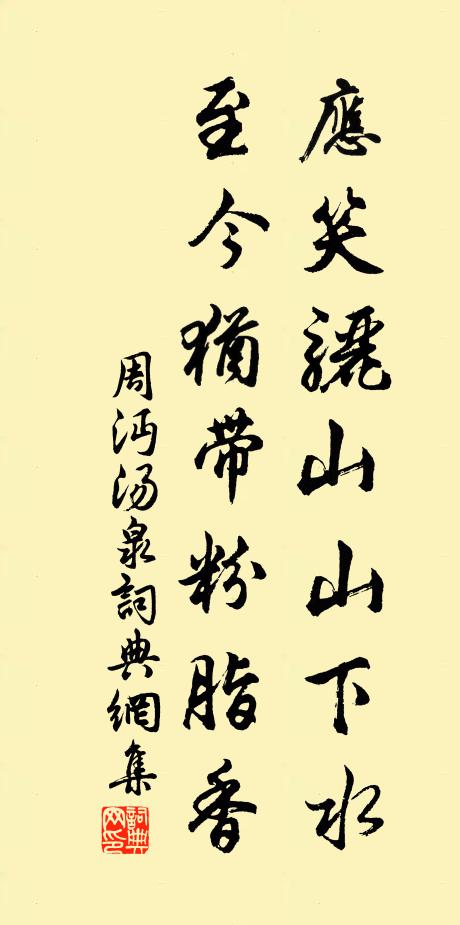 應笑驪山山下水
至今猶帶粉脂香
周沔湯泉詞典網集
詞典网印